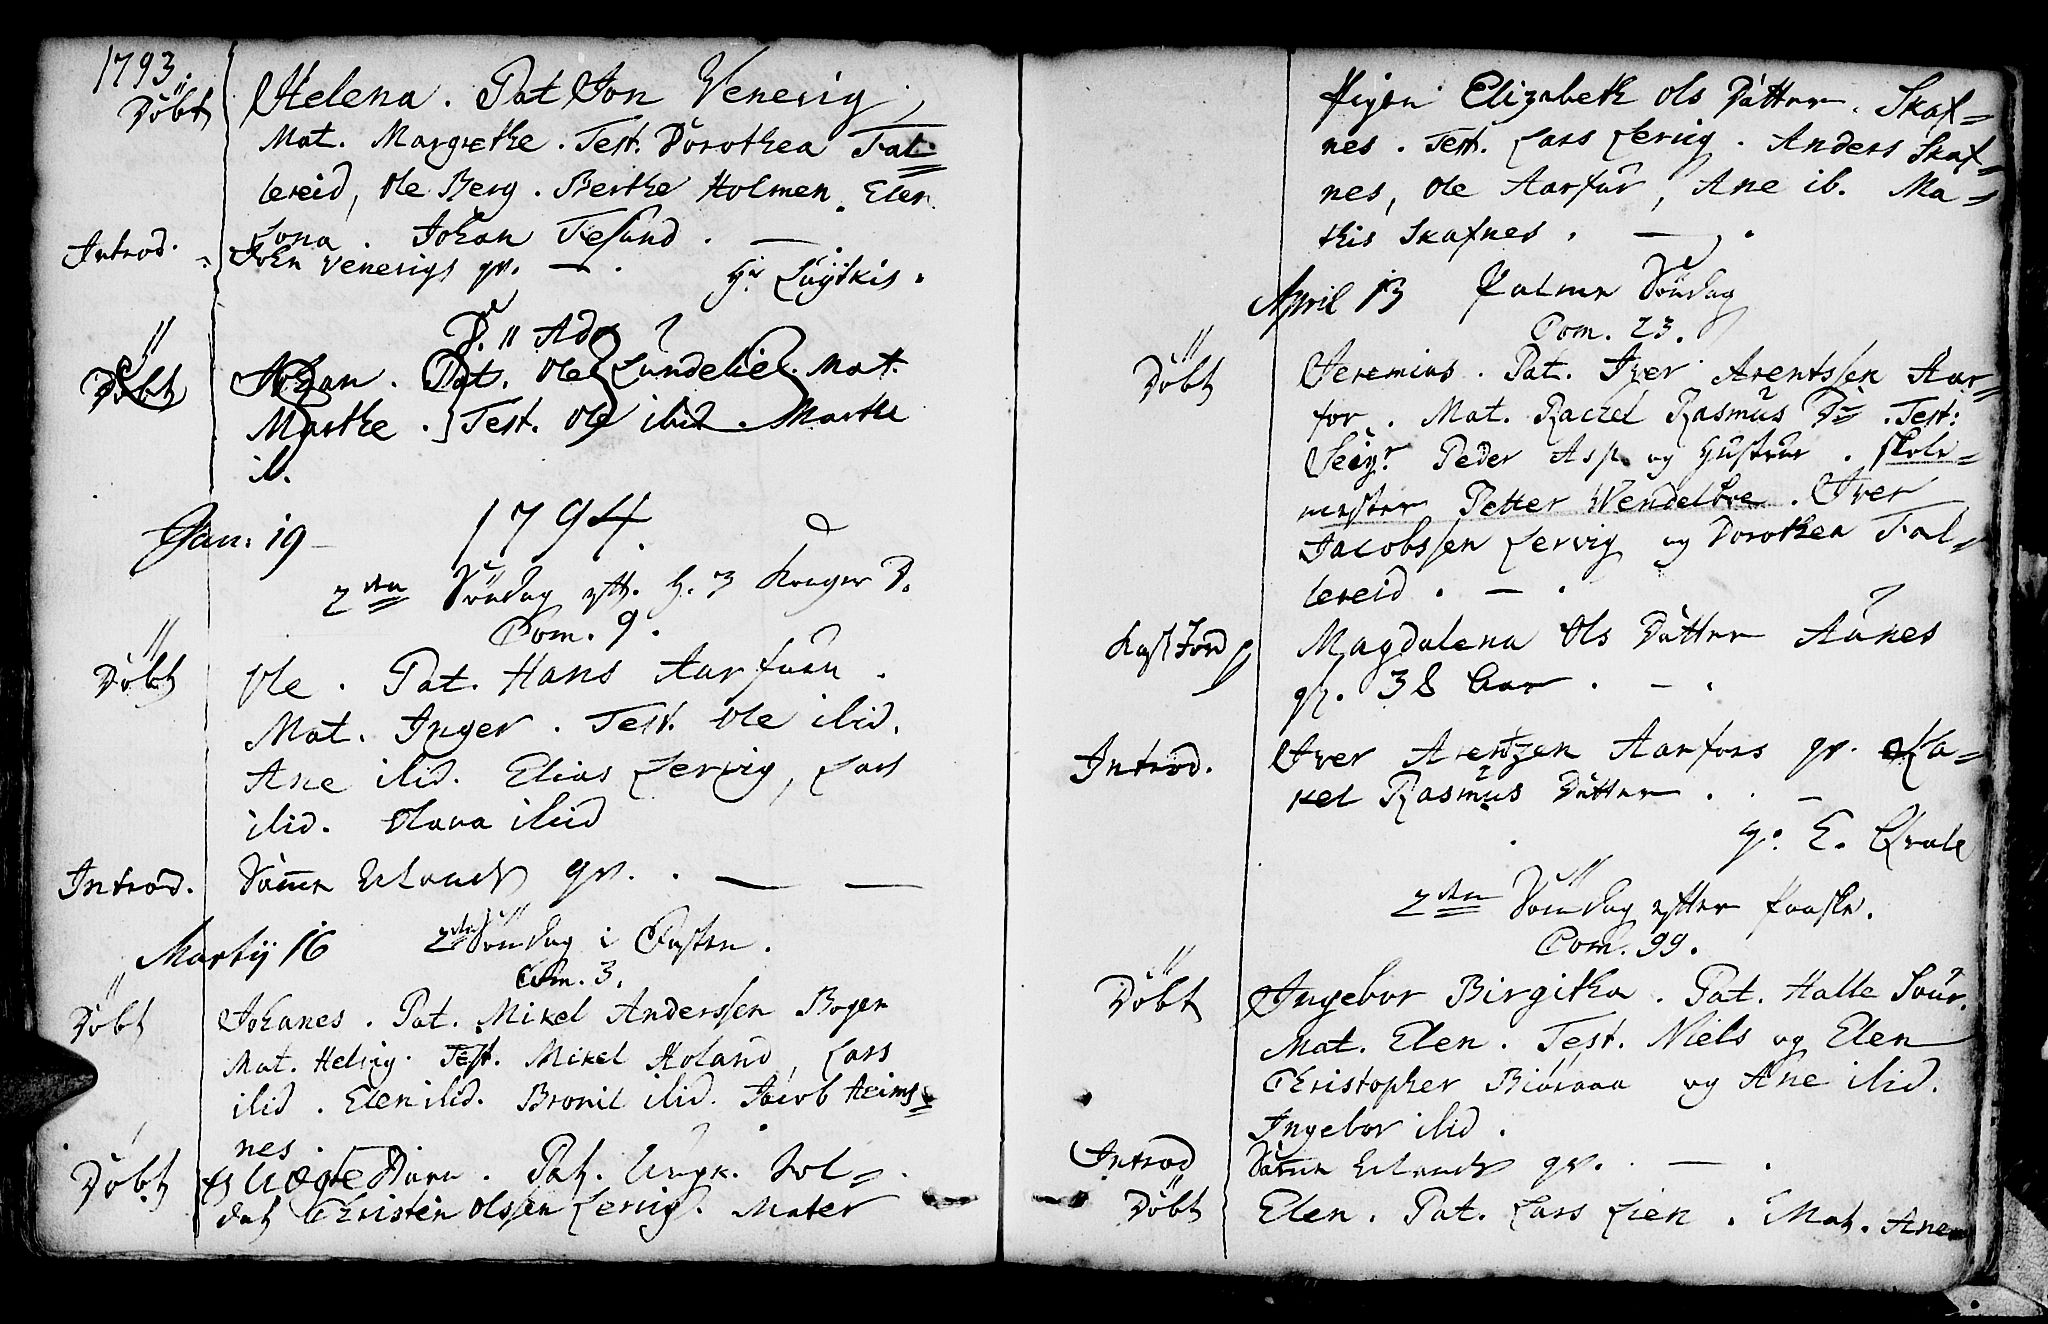 1793.
Döbt Helena. Pat Jon Venevig,
Mat. Margrethe. Test. Dorothea Fal=
lereid, Ole Berg. Berthe Holmen. Elen
Lona. Johan Fiesund. — .
Introd. John Venevigs qv. — . Hr Lügtkis.
D. 11 Ad
Döbt Johan. Pat. Ole Lundelie. Mat.
Marthe. Test. Ole ibid. Marthe
ib.
1794.
Jan. 19
2den Söndag eft. H. 3 Konger D.
Com. 9.
Döbt Ole. Pat. Hans Aarfuru.
Mat. Inger. Test. Ole ibid.
Ane ibid. Elias Lervig, Lars
ibid. Olava ibid
Introd. Samme Erlands qv. . — —
Martij 16 2den Söndag i Fasten.
Com. 3.
Döbt Johanes. Pat. Mikel Anderssen Bogen
Mat. Helvig. Test. Mikel Holand, Lars
ibid. Elen ibid. Bronil ibid. Jacob Heims=
nes.
Döbt et Uægte Barn. Pat. Ungk. Sol=
dat Christen Olssen Lervig. Mater
Pigen Elizabeth Ols Datter. Skaf=
nes. Test. Lars Lervig. Anders Skaf=
nes, Ole Aarfur, Ane ib. Ma=
this Skafnes. — .
April 13 Palme Söndag
Com. 23.
Döbt Jeremias. Pat. Iver Arentssen Aar=
for. Mat. Rachel Rasmus Dr. Test:
Seigr. Peder Asp og Hustrue. Skole=
mester Petter Wendelboe. Iver
Jacobssen Lervig og Dorothea Fal=
lereid. — .
Kast Jord p Magdalena Ols Datter Aünes
gl. 38 Aar. — .
Introd. Iver Arentzen Aarfors qv. Ra=
kel Rasmüs Datter. . —
H. E. Qvale
2den Söndag efter Paaske.
Com. 99.
Döbt Ingebor Birgitha. Pat. Halle Saur.
Mat. Elen. Test. Niels og Elen
Christopher Biöraaa og Ane ibid.
Ingebor ibid.
Introd Samme Erlands qv. . — .
Döbt Elen. Pat. Lars Lien. Mat. Ane